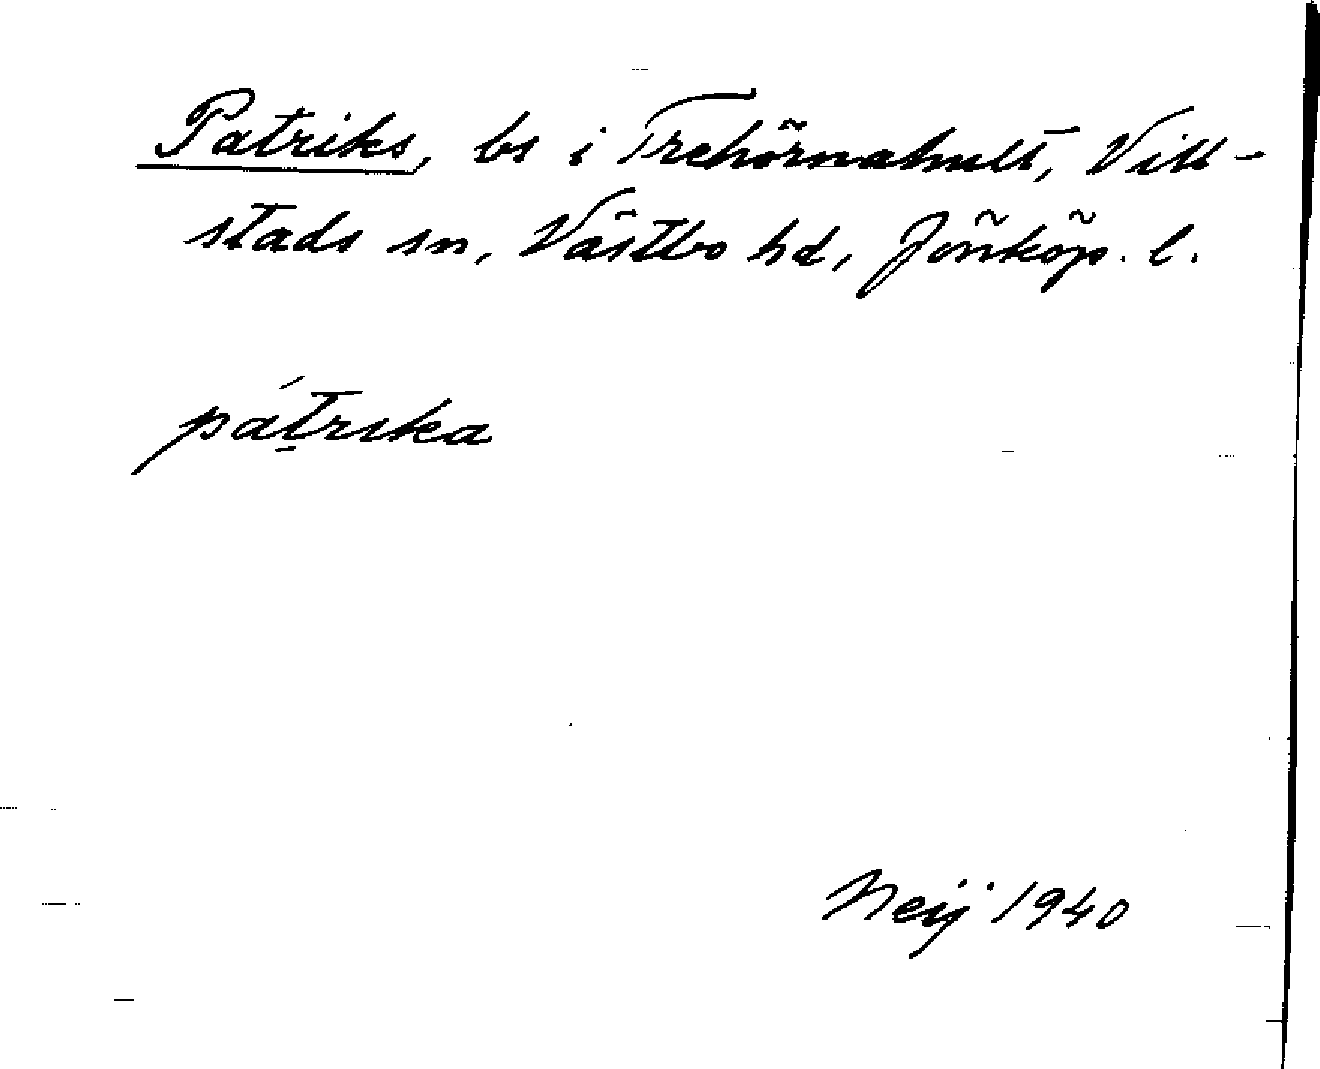 Patriks, bs i Trehörnahult, Vill-
stads sn, Västbo hd, Jönköp. l.
pátrıka
Neij 1940